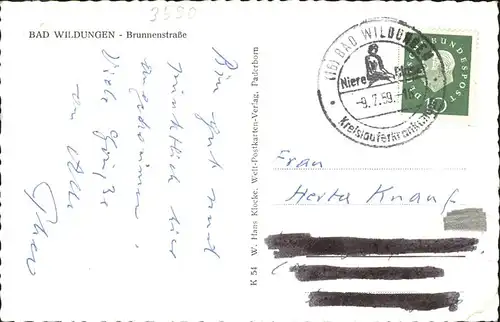 3590
BAD WILDUNGEN - Brunnenstraße
Bin gut und
pünktlich hier
angekommen.
Viele Grüße
von
K 54 W. Hans Klocke, Welt-Postkarten-Verlag, Paderborn
(16) BAD WILDUNGEN
Niere
-9.7.59.-
Kreislauferkrankung
BUNDESPOST
10
Frau
Herta Knauf